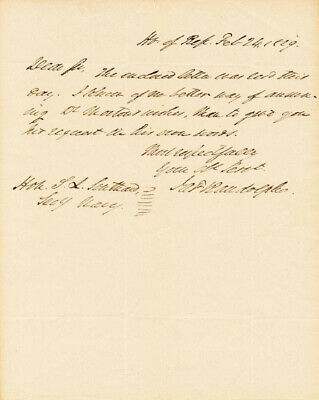 Ho. of Rep. Feb 24. 1829.
Dear Sir, The enclosed letter was recd this
day. I know of no better way of answer
ing Dr wishes, than to give you
his request in his own words.
Most respectfully
Your Obt Servt
Hon. S. L. Southard, Jas Randolph.
Secy Navy.